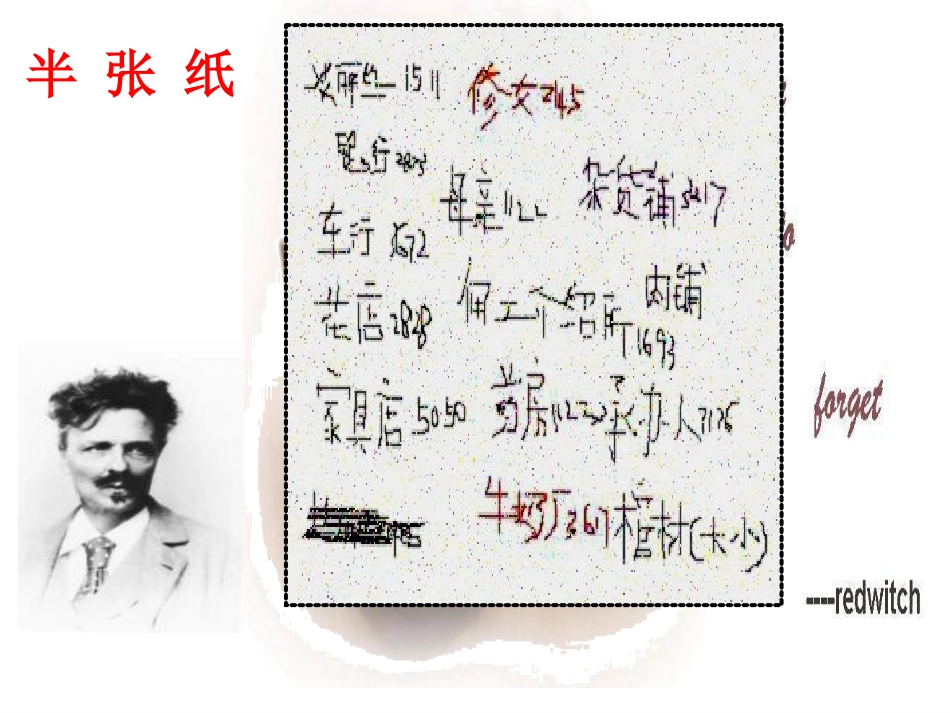 半 张 纸
艾丽丝 1511
修女 245
银行
母亲 1122
杂货铺 3217
车行
花店 2828
佣工介绍所
肉铺 1693
家具店 5050
药房
承办人
牛奶厂 3617
棺材(大小)
forget
----redwitch